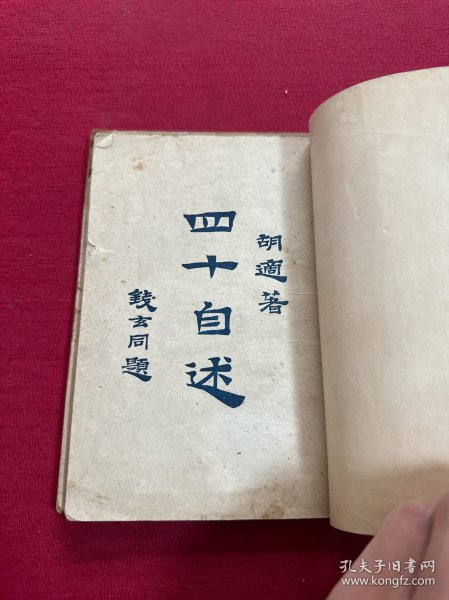 胡適著
四十自述
錢玄同題
孔夫子旧书网
www.kongfz.com